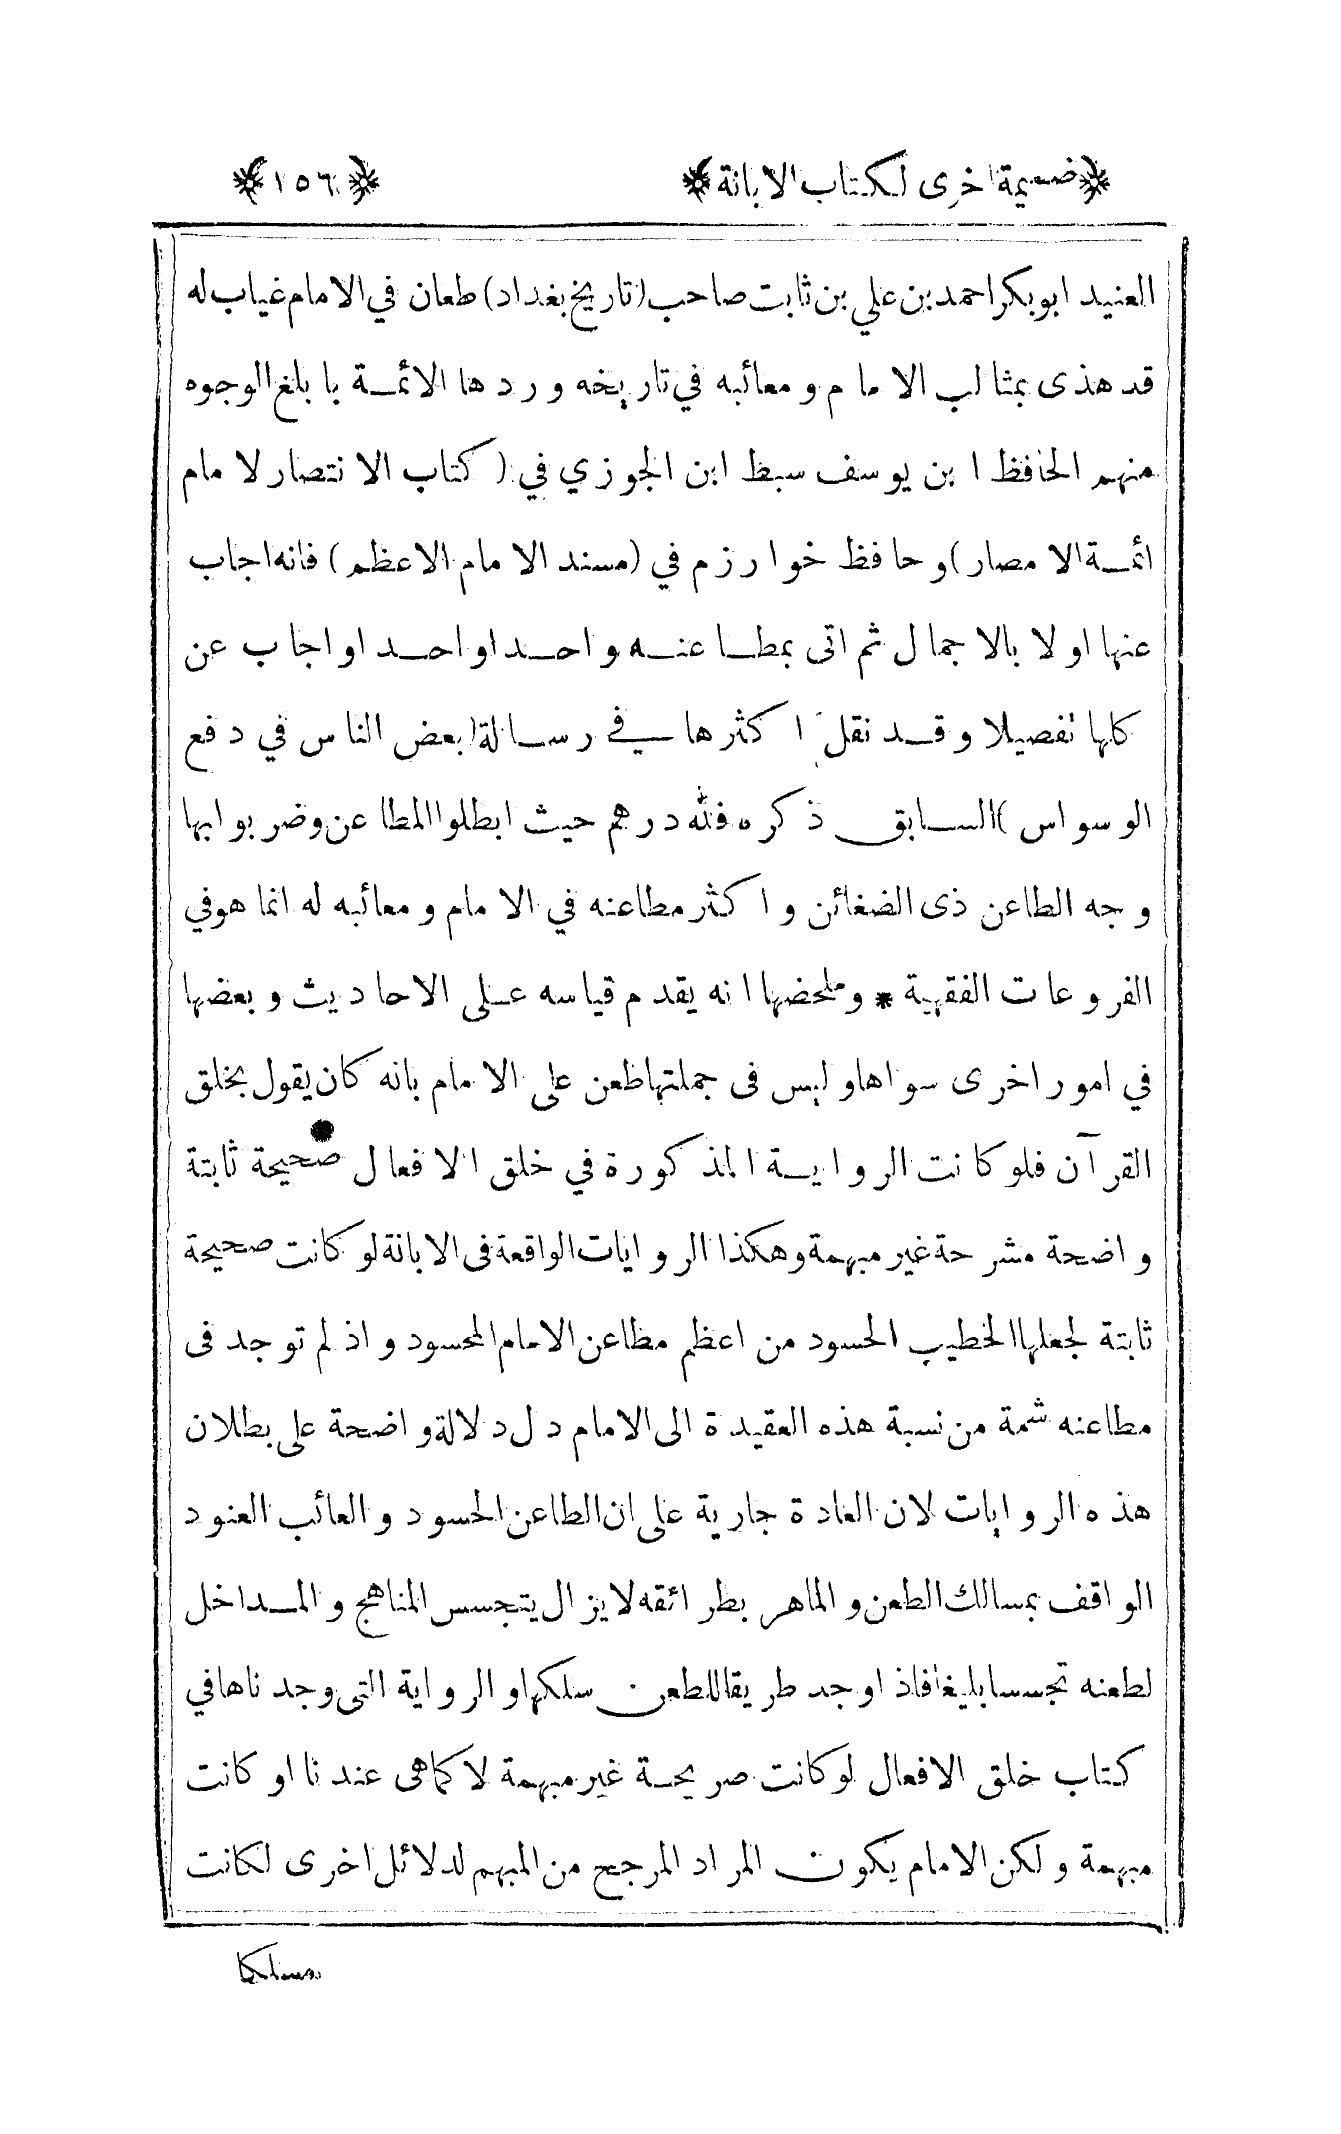 ضميمة اخرى لكتاب الابانة ١٥٦
العنيد ابوبكراحمدبن علي بن ثابت صاحب (تاريخ بغداد) طعان في الامام غياب له
قد هذى بمثالب الامام ومعائبه في تاريخه وردها الائمة بابلغ الوجوه
منهم الحافظ ابن يوسف سبط ابن الجوزي في (كتاب الانتصار لامام
ائمة الامصار) وحافظ خوارزم في (مسند الامام الاعظم) فانه اجاب
عنها اولا بالاجمال ثم اتى بمطاعنه واحدا واحدا واجاب عن
كلها تفصيلا وقد نقل اكثرها في رسالة (بعض الناس في دفع
الوسواس) السابق ذكره فلله درهم حيث ابطلوا المطاعن وضربوا بها
وجه الطاعن ذى الضغائن واكثر مطاعنه في الامام ومعائبه له انما هوفي
الفروعات الفقهية * وملخصها انه يقدم قياسه على الاحاديث وبعضها
في امور اخرى سواها وليس فى جملتها طعن على الامام بانه كان يقول بخلق
القرآن فلو كانت الرواية المذكورة في خلق الافعال صحيحة ثابتة
واضحة مشرحة غير مبهمة وهكذا الروايات الواقعة فى الابانة لو كانت صحيحة
ثابتة لجعلها الخطيب الحسود من اعظم مطاعن الامام المحسود واذ لم توجد فى
مطاعنه شمة من نسبة هذه العقيدة الى الامام دل دلالة واضحة على بطلان
هذه الروايات لان العادة جارية على ان الطاعن الحسود والعائب العنود
الواقف بمسالك الطعن والماهر بطرائقه لايزال يتجسس المناهج والمداخل
لطعنه تجسسا بليغا فاذا وجد طريقا للطعن سلكها والرواية التى وجدناها في
كتاب خلق الافعال لوكانت صريحة غير مبهمة لا كما هى عندنا او كانت
مبهمة ولكن الامام يكون المراد المرجح من المبهم لدلائل اخرى لكانت
مسلكا